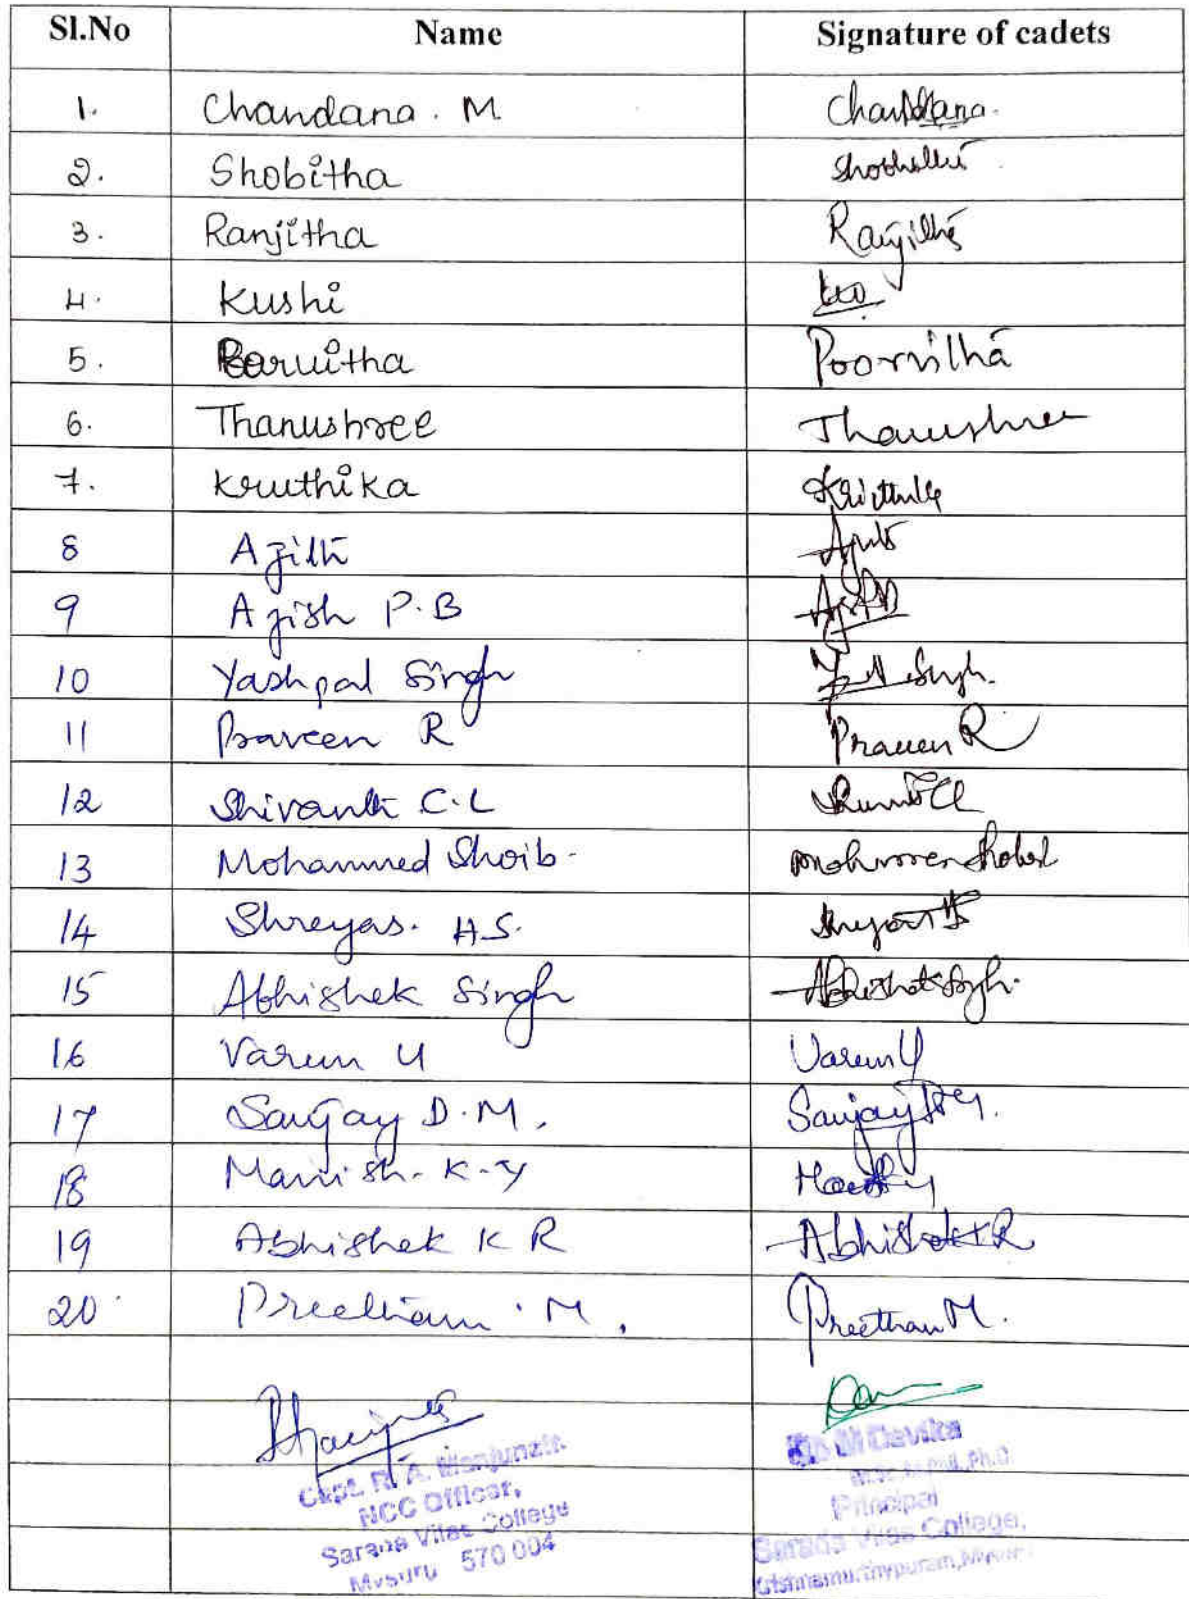 Sl.No Name Signature of cadets
1. Chandana. M Chandana.
2. Shobitha
3. Ranjitha Ranjitha
4. Kushi
5. Poorvitha
6. Thanushree Thanushree
7. Kruthika
8 Ajith Ajith
9 Ajish P.B
10 Yashpal Singh Singh.
11 Praveen R Praveen R
12 Shivanth C.L
13 Mohammed Shoib.
14 Shreyas. H.S.
15 Abhishek Singh Abhishek Singh.
16 Varun U Varun U
17 Sanjay D.M. Sanjay D M.
18 Manish. K.Y
19 Abhishek K R Abhishek K R
20 Preetham. M. Preetham M.
Capt. R. A. Manjunath
NCC Officer,
Sarada Vilas College
Mysuru 570 004
Dr. M Devika
M.Sc. M.Phil., Ph.D.
Principal
Sarada Vilas College,
Krishnamurthypuram,